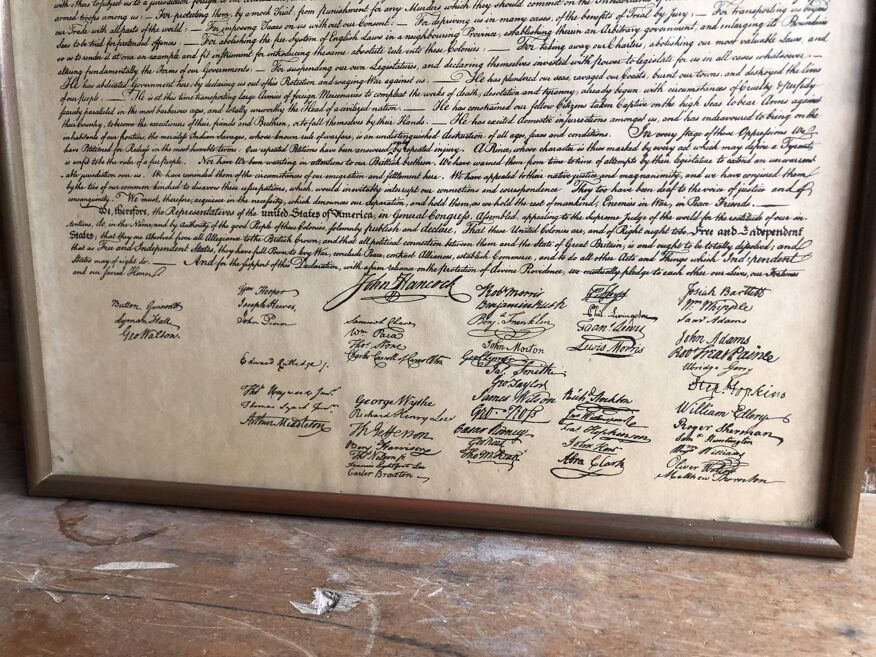 with others to subject us to a jurisdiction foreign to our
armed troops among us: — For protecting them, by a mock Trial, from punishment for any Murders which they should commit on the Inhabitants
our Trade with all parts of the world: — For imposing Taxes on us without our Consent: — For depriving us in many cases, of the benefits of Trial by Jury: — For transporting us beyond
Seas to be tried for pretended offences: — For abolishing the free System of English Laws in a neighbouring Province, establishing therein an Arbitrary government, and enlarging its Boundaries
so as to make it at once an example and fit instrument for introducing the same absolute rule into these Colonies: — For taking away our Charters, abolishing our most valuable Laws, and
altering fundamentally the Forms of our Governments: — For suspending our own Legislatures, and declaring themselves invested with power to legislate for us in all cases whatsoever. —
He has abdicated Government here, by declaring us out of his Protection and waging War against us. — He has plundered our seas, ravaged our Coasts, burnt our towns, and destroyed the lives
of our people. — He is at this time transporting large Armies of foreign Mercenaries to compleat the works of death, desolation and tyranny, already begun with circumstances of Cruelty & perfidy
scarcely paralleled in the most barbarous ages, and totally unworthy the Head of a civilized nation. — He has constrained our fellow Citizens taken Captive on the high Seas to bear Arms against
their Country, to become the executioners of their friends and Brethren, or to fall themselves by their Hands. — He has excited domestic insurrections amongst us, and has endeavoured to bring on the
inhabitants of our frontiers, the merciless Indian Savages, whose known rule of warfare, is an undistinguished destruction of all ages, sexes and conditions. In every stage of these Oppressions We
have Petitioned for Redress in the most humble terms: Our repeated Petitions have been answered only by repeated injury. A Prince, whose character is thus marked by every act which may define a Tyrant,
is unfit to be the ruler of a free people. Nor have We been wanting in attentions to our Brittish brethren. We have warned them from time to time of attempts by their legislature to extend an unwarrant
able jurisdiction over us. We have reminded them of the circumstances of our emigration and settlement here. We have appealed to their native justice and magnanimity, and we have conjured them
by the ties of our common kindred to disavow these usurpations, which, would inevitably interrupt our connections and correspondence They too have been deaf to the voice of justice and of
consanguinity. We must, therefore, acquiesce in the necessity, which denounces our Separation, and hold them, as we hold the rest of mankind, Enemies in War, in Peace Friends. —
We, therefore, the Representatives of the united States of America, in General Congress, Assembled, appealing to the Supreme Judge of the world for the rectitude of our in-
tentions, do, in the Name, and by authority of the good People of these Colonies, solemnly publish and declare, That these United Colonies are, and of Right ought to be Free and Independent
States; that they are Absolved from all Allegiance to the British Crown, and that all political connection between them and the State of Great Britain, is and ought to be totally dissolved; and
that as Free and Independent States, they have full Power to levy War, conclude Peace, contract Alliances, establish Commerce, and to do all other Acts and Things which Independent
States may of right do. — And for the support of this Declaration, with a firm reliance on the protection of divine Providence, we mutually pledge to each other our Lives, our Fortunes
and our sacred Honor.
John Hancock
Button Gwinnett
Lyman Hall
Geo Walton.
Wm Hooper
Joseph Hewes,
John Penn
Edward Rutledge /.
Thos Heyward Junr.
Thomas Lynch Junr.
Arthur Middleton
Samuel Chase
Wm Paca
Thos Stone
Charles Carroll of Carrollton
George Wythe
Richard Henry Lee
Th Jefferson
Benj Harrison
Thos Nelson jr.
Francis Lightfoot Lee
Carter Braxton
Robt Morris
Benjamin Rush
Benj. Franklin
John Morton
Geo Clymer
Jas. Smith
Geo. Taylor
James Wilson
Geo. Ross
Caesar Rodney
Geo Read
Tho M:Kean
Wm Floyd
Phil. Livingston
Frans. Lewis
Lewis Morris
Richd. Stockton
Jno Witherspoon
Fras. Hopkinson
John Hart
Abra Clark
Josiah Bartlett
Wm. Whipple
Saml Adams
John Adams
Robt Treat Paine
Elbridge Gerry
Step. Hopkins
William Ellery
Roger Sherman
Saml Huntington
Wm Williams
Oliver Wolcott
Matthew Thornton